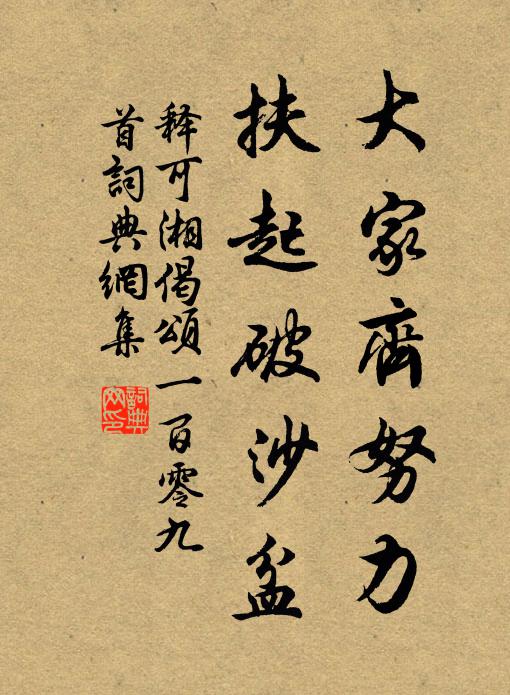 大家齊努力
扶起破沙盆
釋可湘偈頌一百零九
首詞典網集
詞典網印